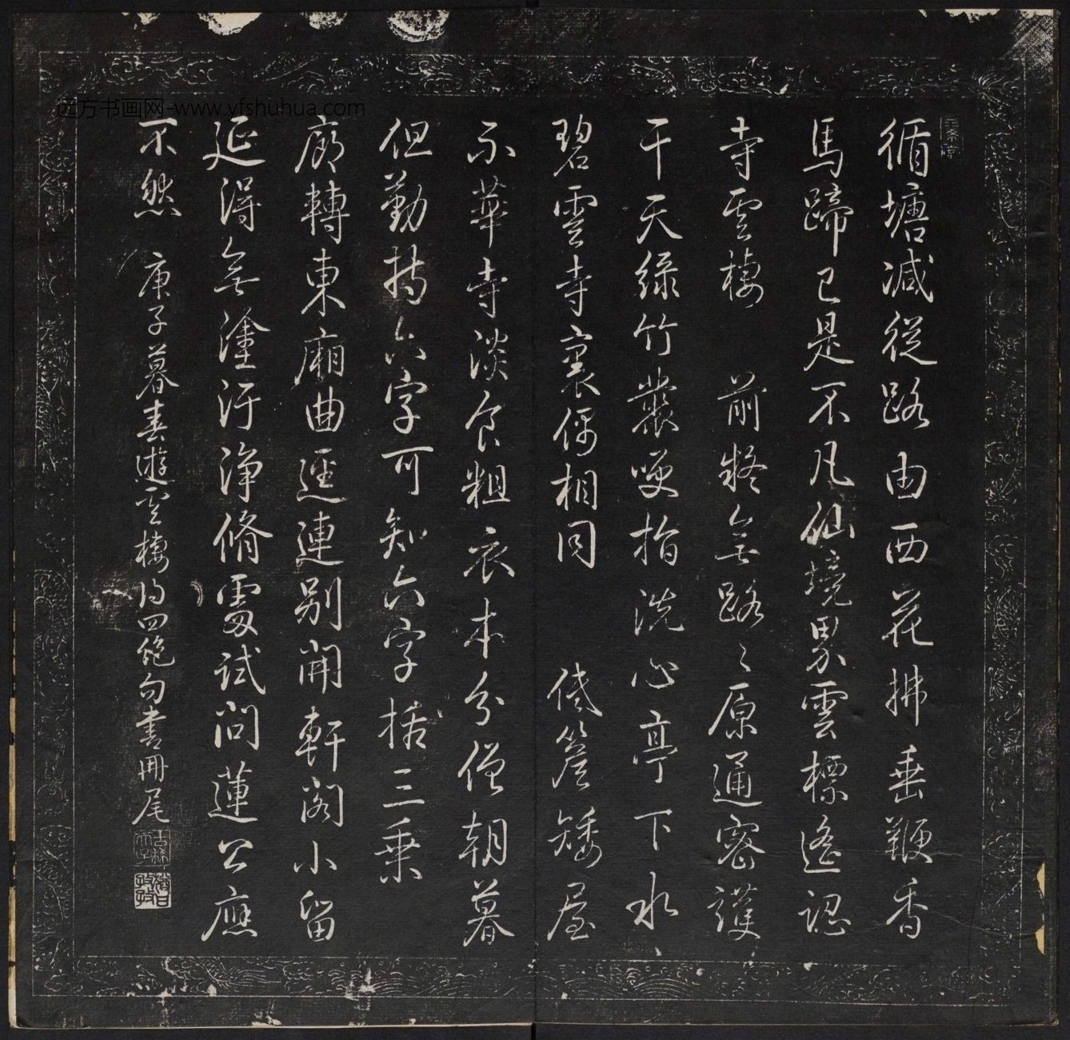 循塘減従路由西花拂垂鞭香
馬蹄已是不凡仙境界雲標遙認
寺雲棲　前礙無路々原通密護
干天綠竹叢嘜指洗心亭下水
碧雲寺裏偶相同　低簷矮屋
不華寺淡食粗衣本分僧朝暮
但勤持六字可知六字括三乗
廊轉東廂曲逕連別開軒閣小留
延得無塗汙淨脩處試問蓮公應
不然　庚子暮春遊雲棲得四絶句書冊尾
远方书画网-www.yfshuhua.com